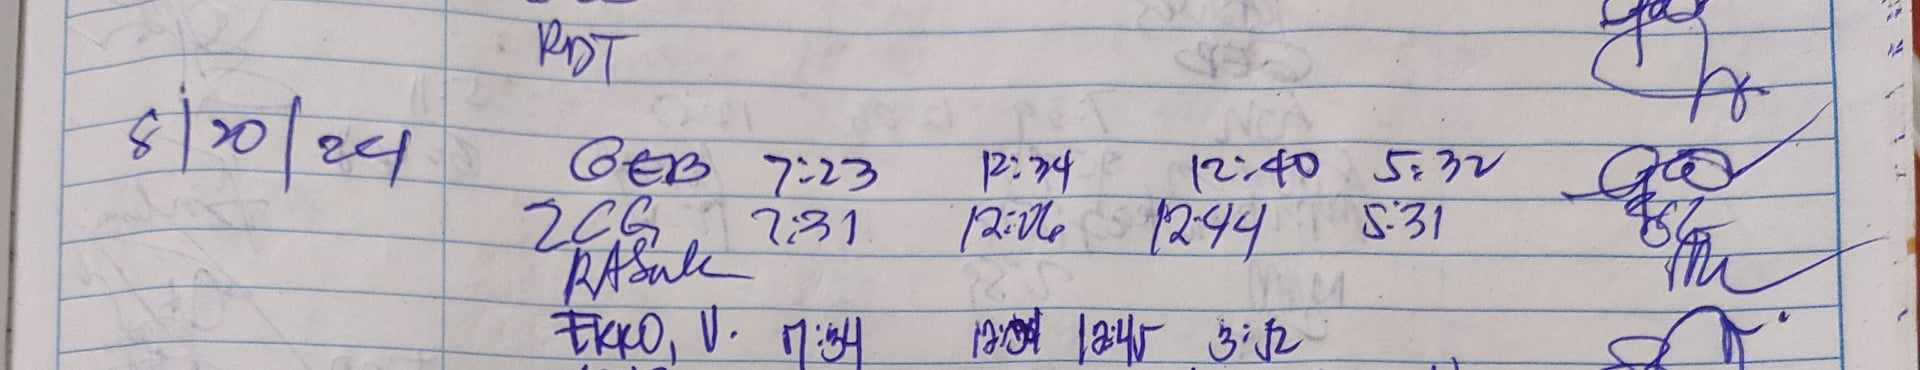 RDT
8/20/24 GEB 7:23 12:34 12:40 5:32
ZCG 7:31 12:06 12:44 5:31
EKKO, V. 7:34 12:45 3:52